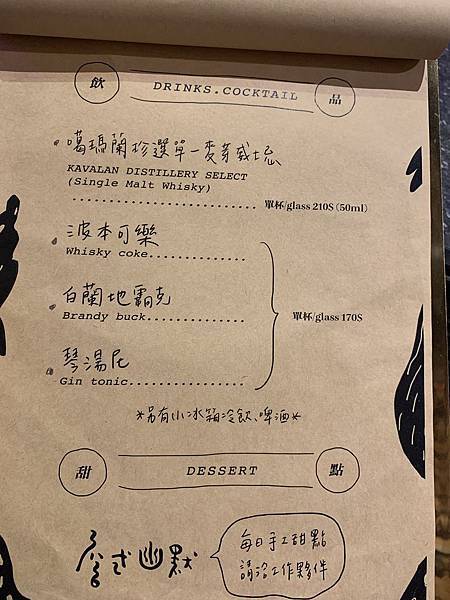 飲 DRINKS.COCKTAIL 品
噶瑪蘭珍選單一麥芽威士忌
KAVALAN DISTILLERY SELECT
(Single Malt Whisky)
.......................... 單杯/glass 210S (50ml)
波本可樂
Whisky coke..............
白蘭地霸克
Brandy buck..............
單杯/glass 170S
琴湯尼
Gin tonic................
*另有小冰箱冷飲、啤酒*
甜 DESSERT 點
式幽默
每日手工甜點
請洽工作夥伴